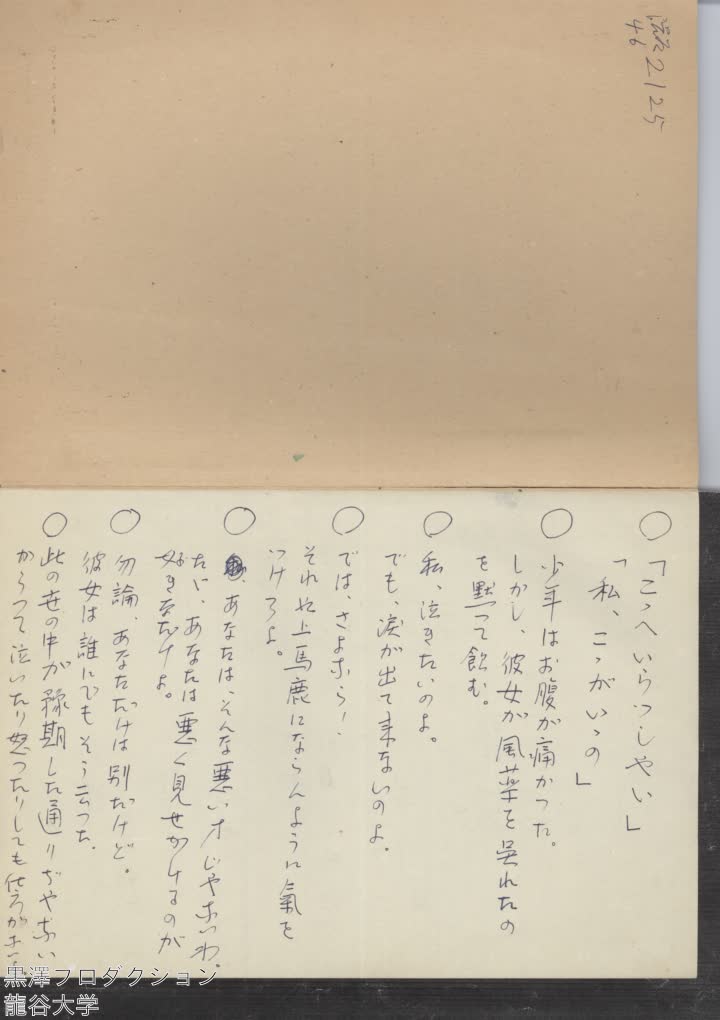 2125
46
○「こゝへいらつしやい」
「私、こゝがいゝの」
○少年はお腹が痛かつた。
しかし、彼女が風薬を呉れたの
を黙つて飲む。
○私、泣きたいのよ。
でも、涙が出て来ないのよ。
○では、さよなら!
それ以上馬鹿にならんように氣を
つけろよ。
○あなたは、そんな悪い人じやないわ、
たゞ、あなたは悪く見せかけるのが
好きなだけよ。
○勿論、あなただけは別だけど。
彼女は誰にでもそう云つた。
○此の世の中が豫期した通りぢやない
からつて泣いたり怒つたりしても仕方がない
黒澤プロダクション
龍谷大学